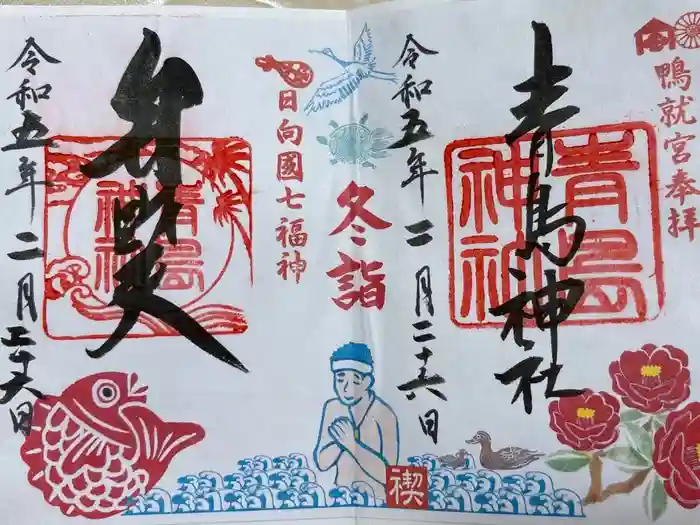 鴨就宮奉拝
青島神社
青島
神社
令和五年二月二十六日
冬詣
日向國七福神
弁財天
青島
神社
令和五年二月二十六日
禊